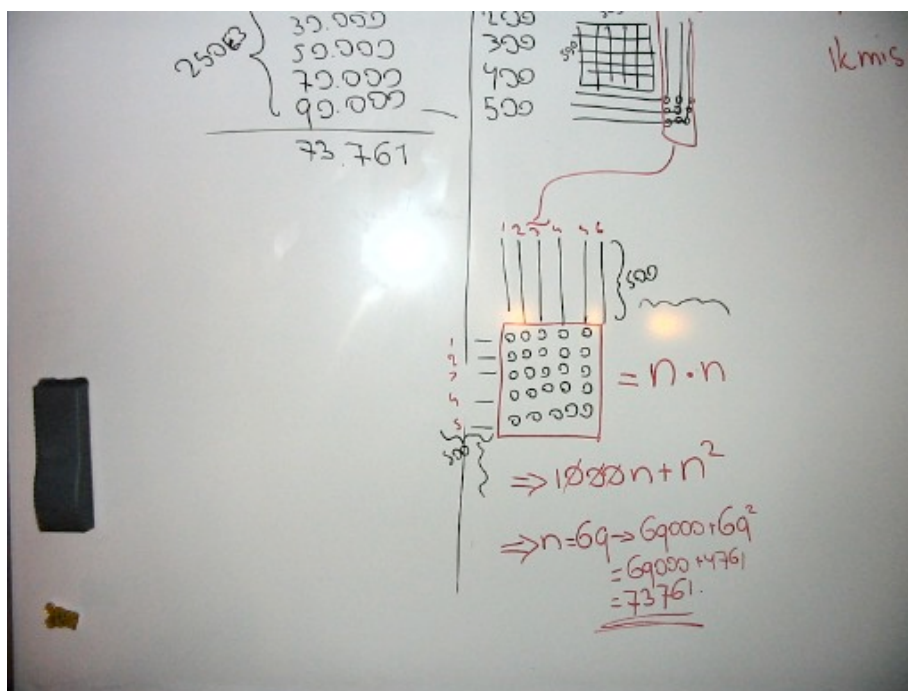 30.000
50.000
70.000
90.000
73.761
200
300
400
500
500
1kmis
1 2 3 4 5 6
500
1
2
3
4
5
500
= n · n
⇒ 1000n + n²
⇒ n = 69 → 69000 + 69²
= 69000 + 4761
= 73761.